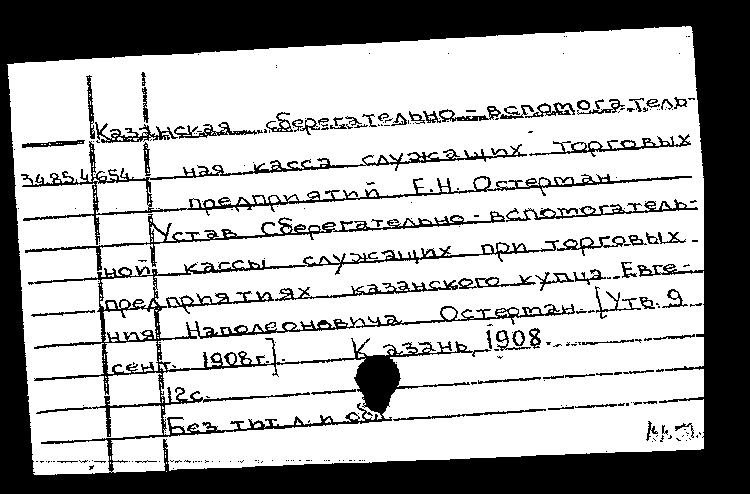 Казанская сберегательно-вспомогатель-
34.85.4.654 ная касса служащих торговых
предприятий Е.Н. Остерман
Устав Сберегательно-вспомогатель-
ной кассы служащих при торговых
предприятиях казанского купца Евге-
ния Наполеоновича Остерман [Утв. 9
сент. 1908г.]. Казань, 1908.
12с.
Без тит. л. и обл.